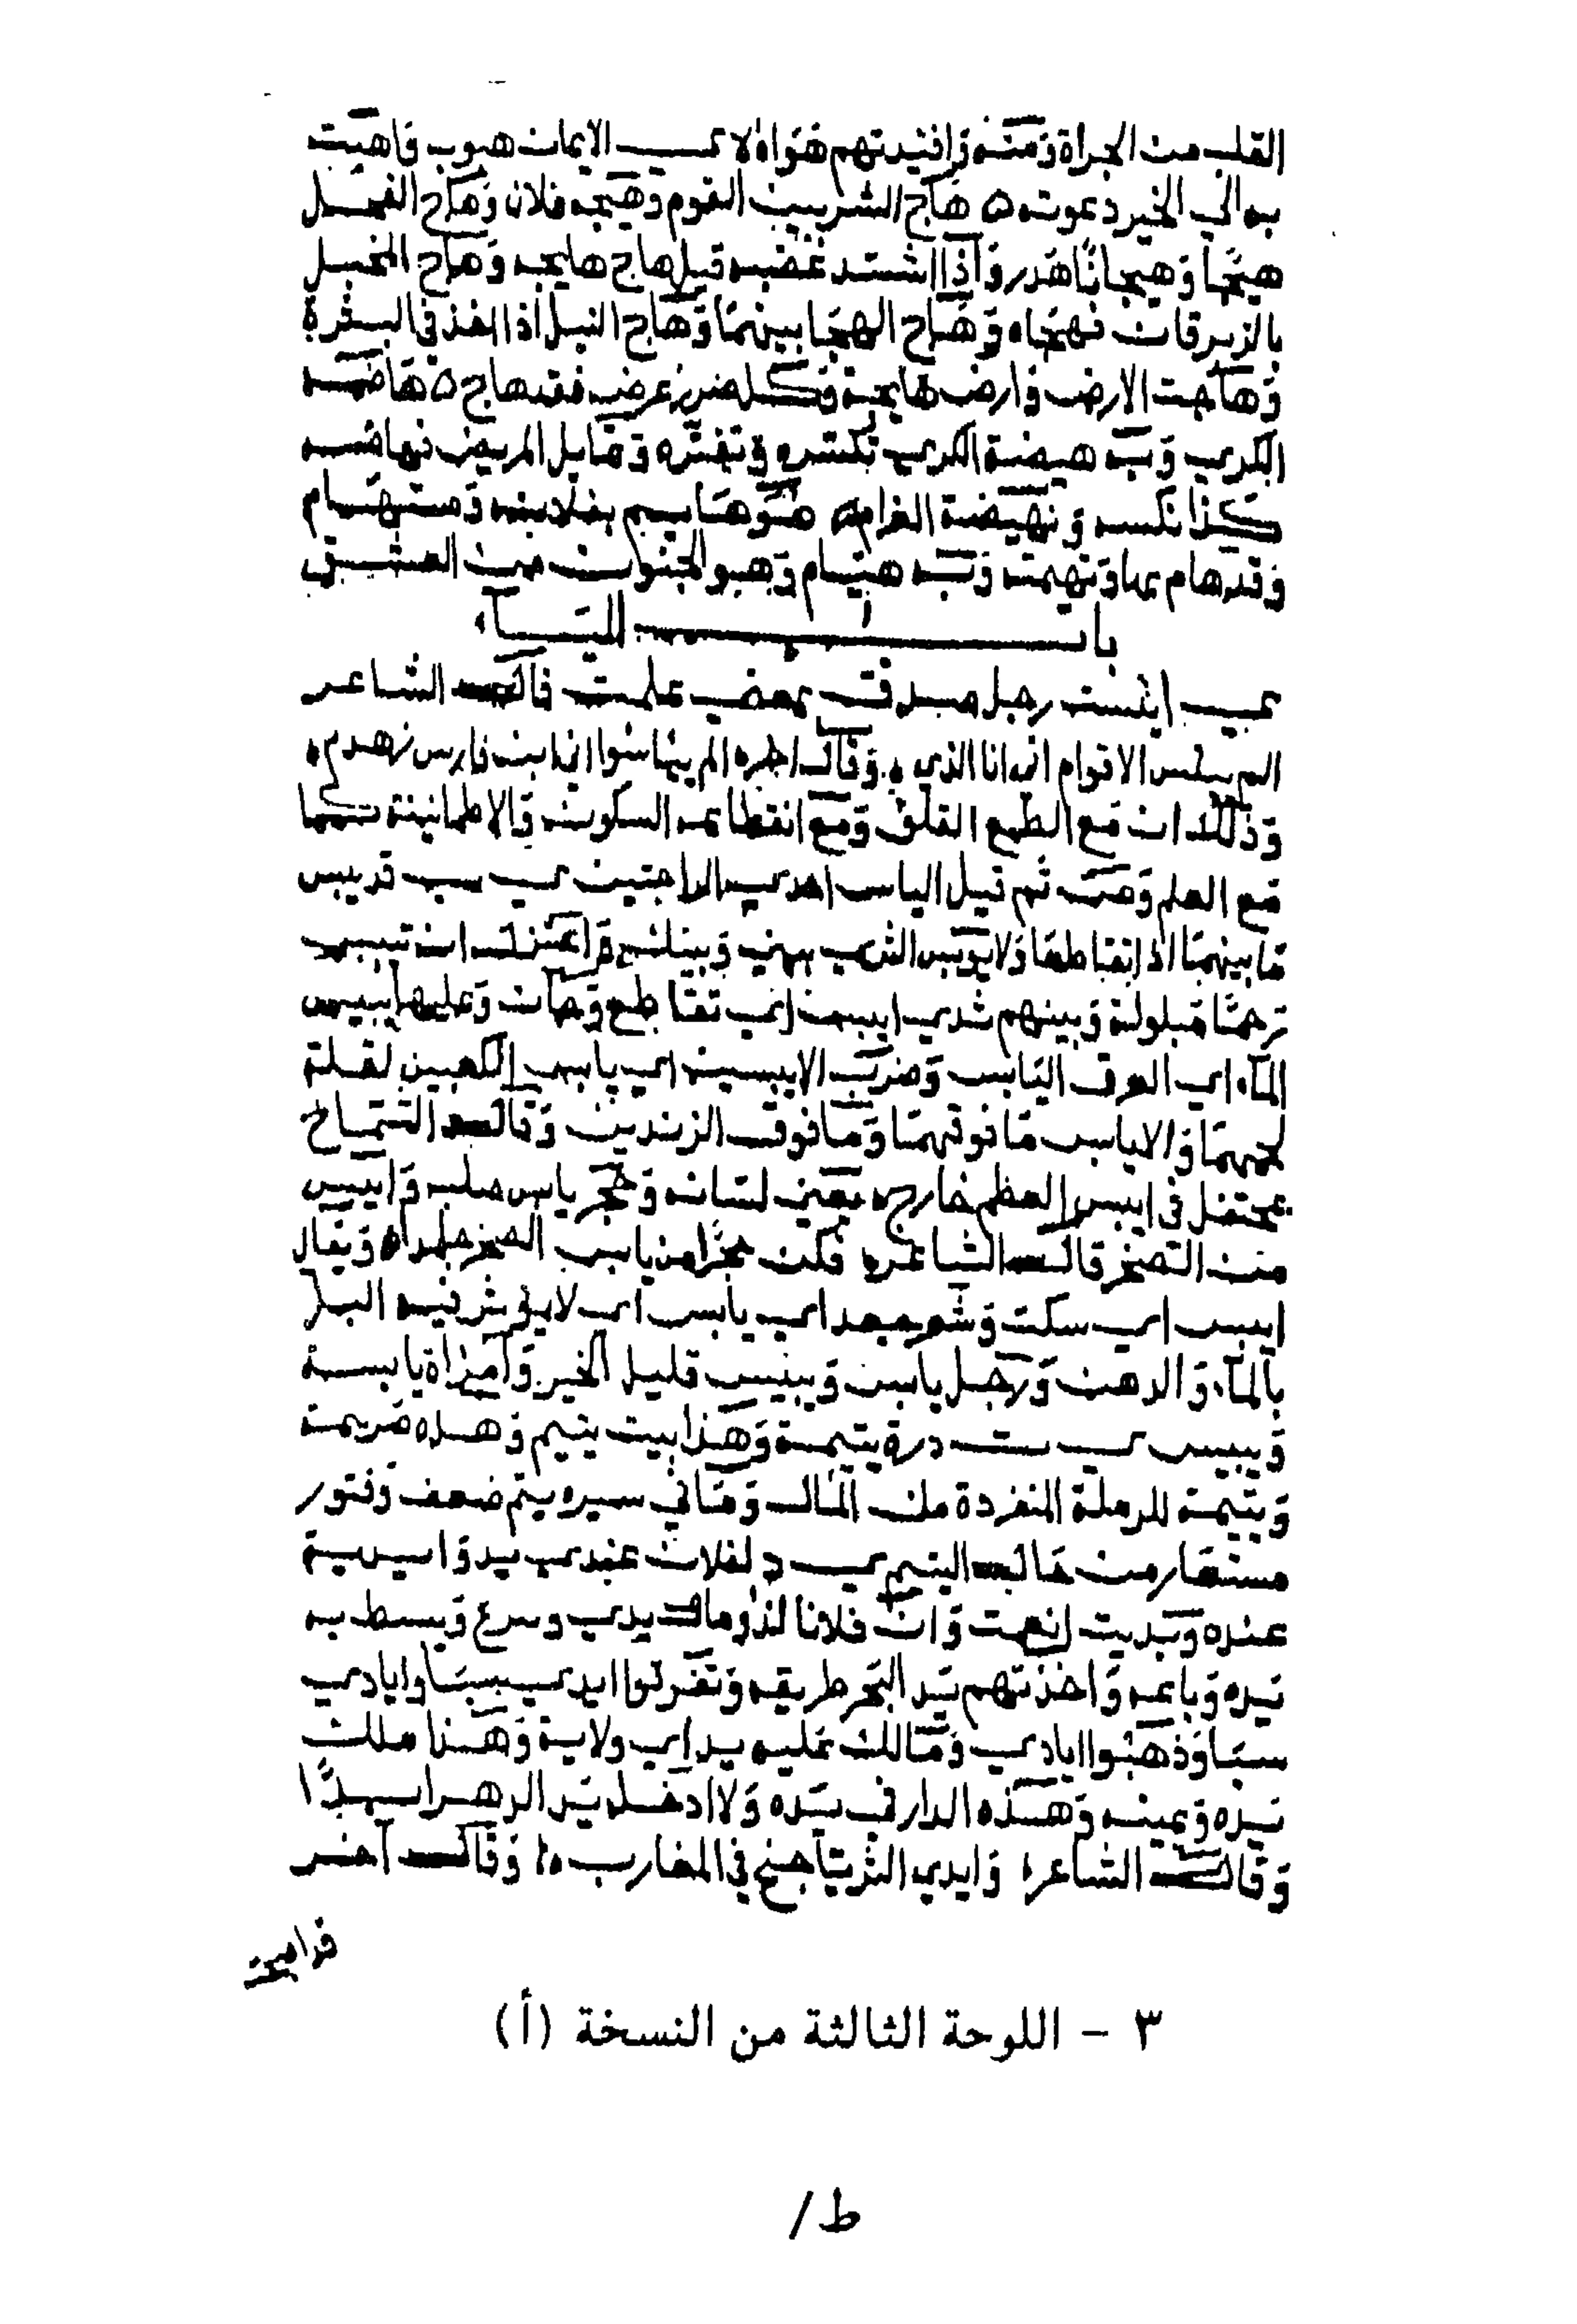 القلب من الجراة ومنه وافئدتهم هواء لا ي الايمان هبوب واهبت
به الي الخير دعوته ه هاج الشربين القوم وهيجه فلان وهاج الفحل
هيجا وهيجانا هدر واذا اشتد غضبه قيل هاج هايجه وهاج المخبل
بالزبرقان فهجاه وهاج الهجا بينهما وهاج النبل اذا اخذ في السفرة
وهاجت الارض وارض هايجة وكل ضرر عرض فقد هاج ه هاضه
الكري وبه هيضة الكري تكسره وتفتره وتماثل المريض فهاضه
كذا نكسه وتهيضه الغرام ه هو هايم بفلانة ومستهام
وقد هام بها وتهيمته وبه هيام وهو الجنون من العشق
باب الياء
ي ايئست رجل صدق بعضي علمت قال الشاعر
الم ييئس الاقوام اني انا الذي ه وقال اخره الم يياسوا اني ابن فارس زهدم
وذلك ان مع الطمع القلق ومع انقطاعه السكون والاطمانينة كما
مع العلم ومن ثم قيل الياس احدي الراحتين ي ب س قد يبس
ما بينهما اذا تقاطعا ولا توبس الثري بيني وبينك واعيذك ان تيبس
رحما مبلولة وبينهم ثدي ايبس اي تقاطع وجات وعليها يبيس
الماء اي العرق اليابس وضرب الايبسين اي يابس الكعبين لقلة
لحمهما والايابس ما فوقهما وما فوق الزندين وقال الشماخ
بمحتفل في ايبس العظم خارج ه يعني لسانه وحجر يابس صلب وايبس
من الصخر قال الشاعره فكن حجرا من يابس الصخر جلمدا ه ويقال
ايبس اي سكت وشعر جعد اي يابس اي لا يؤثر فيه البل
بالماء والدهن ورجل يابس ويبيس قليل الخير وامراة يابسة
ويبيس ي ت درة يتيمة وهذا بيت يتيم وهذه صريمة
ويتيمة للرملة المنفردة من المال وما في سيره يتم ضعف وفتور
مستعار من حال اليتيم ي د لفلان عندي يد وايديت
عنده ويديت انعمت وان فلانا لذو مال يدي وسرع ويبسط به
يده وباعه واخذتهم يد البحر طريقه وتفرقوا ايدي سبا وايادي
سبا وذهبوا ايادي ومالك عليه يد اي ولاية وهذا ملك
يده ويمينه وهذه الدار في يده ولا ادخله يد الدهر ابدا
وقال الشاعر وايدي الثريا جنح في المغارب ه وقال آخر
فراميت
٣ - اللوحة الثالثة من النسخة (أ)
ط/